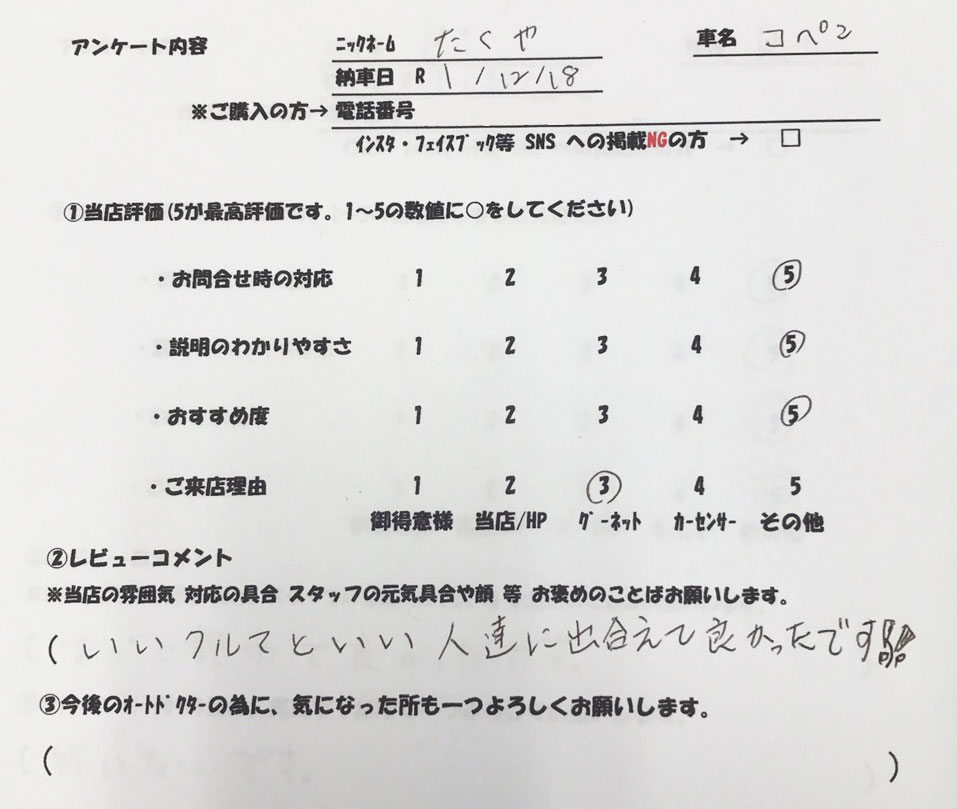 アンケート内容 ニックネーム たくや 車名 コペン
納車日 R 1/12/18
※ご購入の方→ 電話番号
インスタ・フェイスブック等 SNS への掲載NGの方 → □
①当店評価(5が最高評価です。1~5の数値に○をしてください)
・お問合せ時の対応 1 2 3 4 5
・説明のわかりやすさ 1 2 3 4 5
・おすすめ度 1 2 3 4 5
・ご来店理由 1 2 3 4 5
御得意様 当店/HP グーネット カーセンサー その他
②レビューコメント
※当店の雰囲気 対応の具合 スタッフの元気具合や顔 等 お褒めのことばお願いします。
(いいクルマといい人達に出合えて良かったです!!
③今後のオートドクターの為に、気になった所も一つよろしくお願いします。
( )